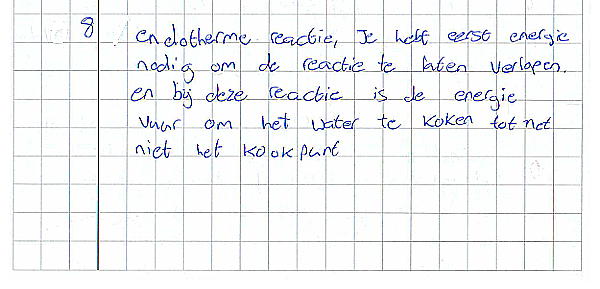 8 endotherme reactie, Je hebt eerst energie
nodig om de reactie te laten verlopen.
en bij deze reactie is de energie
vuur om het water te koken tot net
niet het kookpunt